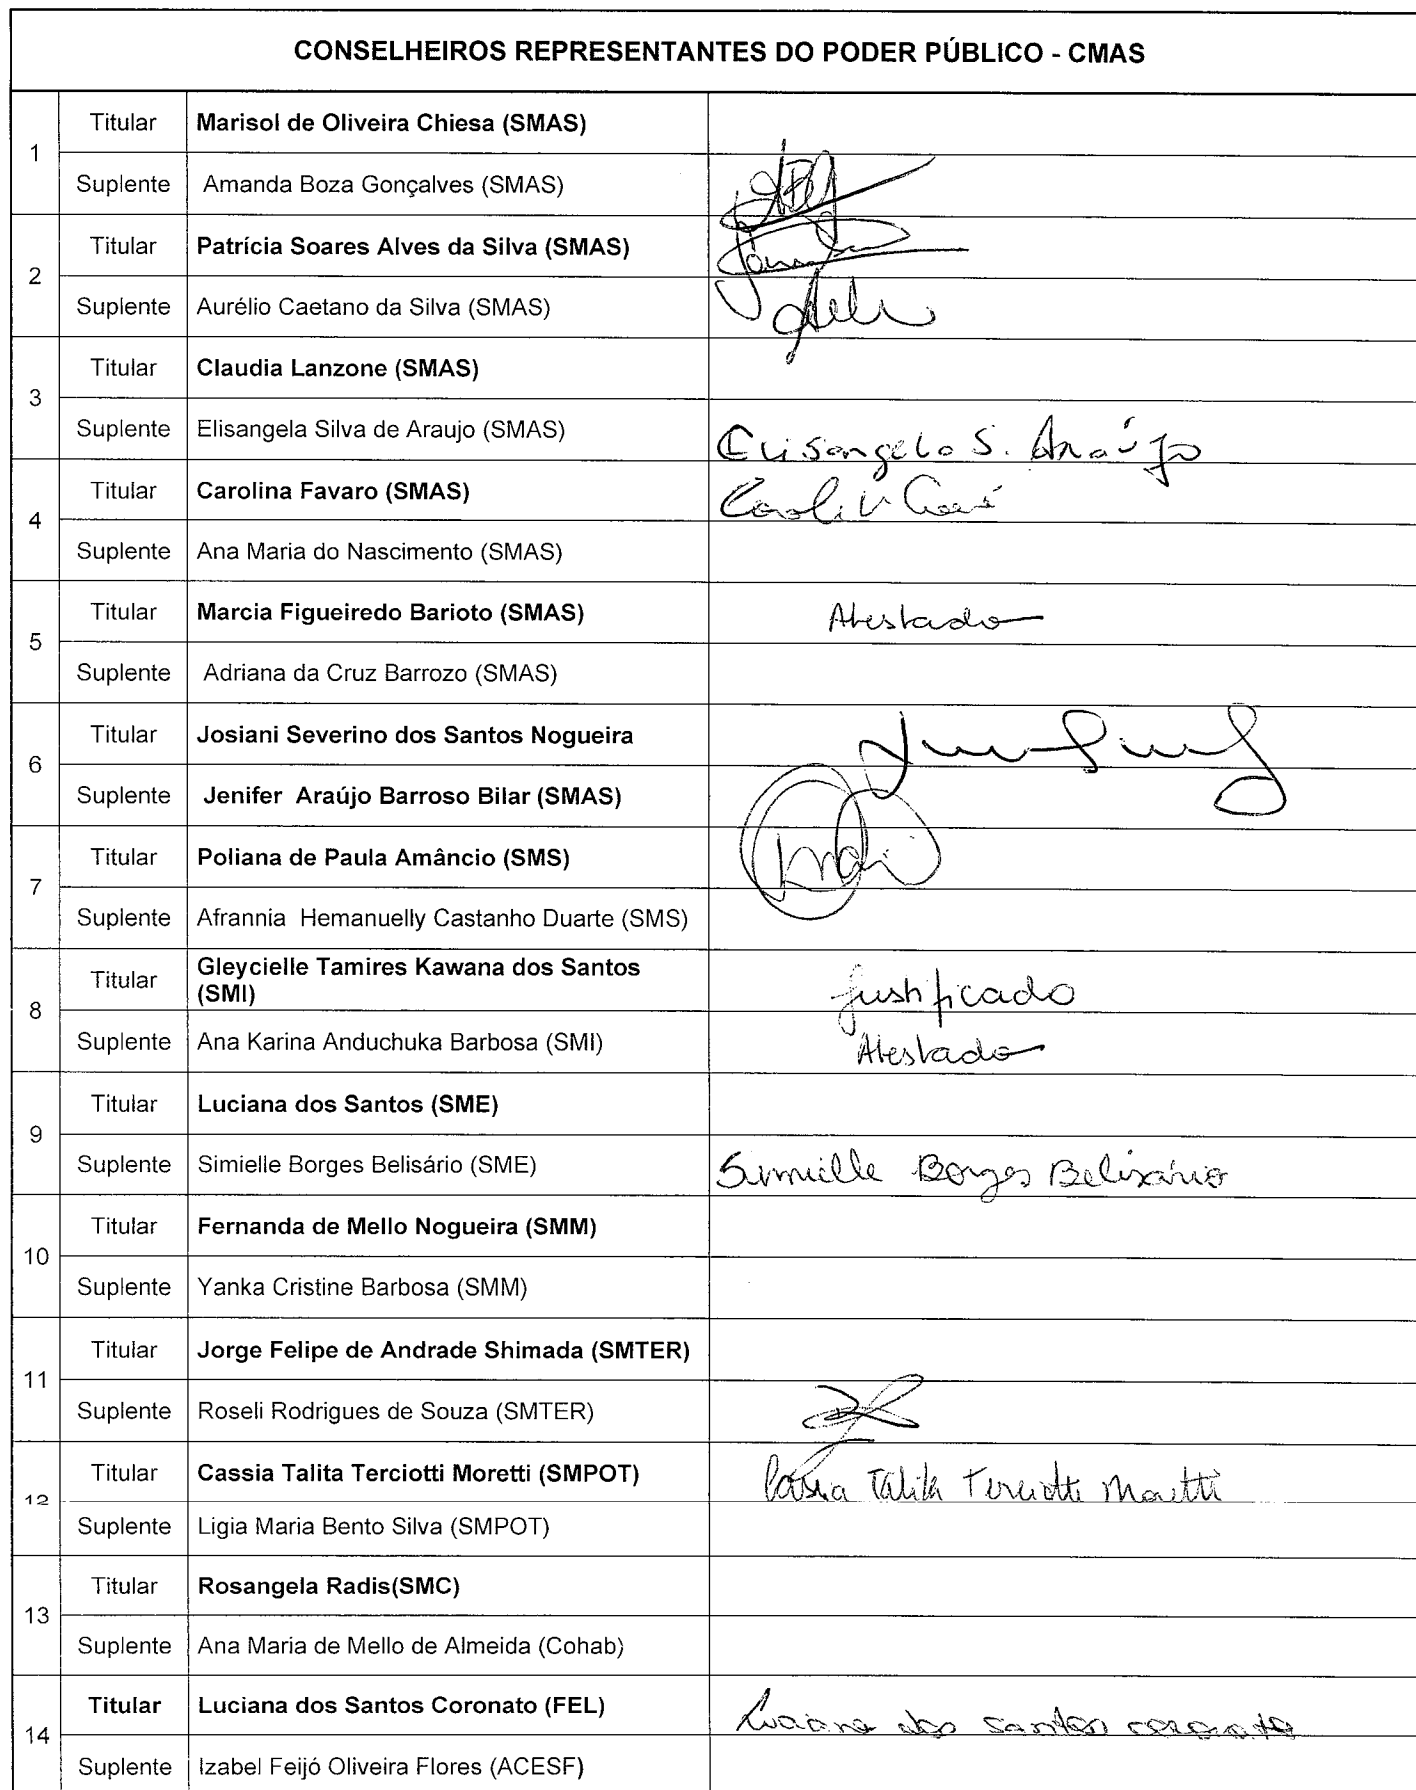 CONSELHEIROS REPRESENTANTES DO PODER PÚBLICO - CMAS
1
Titular Marisol de Oliveira Chiesa (SMAS)
Suplente Amanda Boza Gonçalves (SMAS)
2
Titular Patrícia Soares Alves da Silva (SMAS)
Suplente Aurélio Caetano da Silva (SMAS)
3
Titular Claudia Lanzone (SMAS)
Suplente Elisangela Silva de Araujo (SMAS) Elisangela S. Araújo
4
Titular Carolina Favaro (SMAS)
Suplente Ana Maria do Nascimento (SMAS)
5
Titular Marcia Figueiredo Barioto (SMAS) Atestado
Suplente Adriana da Cruz Barrozo (SMAS)
6
Titular Josiani Severino dos Santos Nogueira
Suplente Jenifer Araújo Barroso Bilar (SMAS)
7
Titular Poliana de Paula Amâncio (SMS)
Suplente Afrannia Hemanuelly Castanho Duarte (SMS)
8
Titular Gleycielle Tamires Kawana dos Santos
(SMI) Justificado
Suplente Ana Karina Anduchuka Barbosa (SMI) Atestado
9
Titular Luciana dos Santos (SME)
Suplente Simielle Borges Belisário (SME) Simielle Borges Belisário
10
Titular Fernanda de Mello Nogueira (SMM)
Suplente Yanka Cristine Barbosa (SMM)
11
Titular Jorge Felipe de Andrade Shimada (SMTER)
Suplente Roseli Rodrigues de Souza (SMTER)
12
Titular Cassia Talita Terciotti Moretti (SMPOT) Cassia Talita Terciotti Moretti
Suplente Ligia Maria Bento Silva (SMPOT)
13
Titular Rosangela Radis(SMC)
Suplente Ana Maria de Mello de Almeida (Cohab)
14
Titular Luciana dos Santos Coronato (FEL) Luciana dos Santos coronato
Suplente Izabel Feijó Oliveira Flores (ACESF)